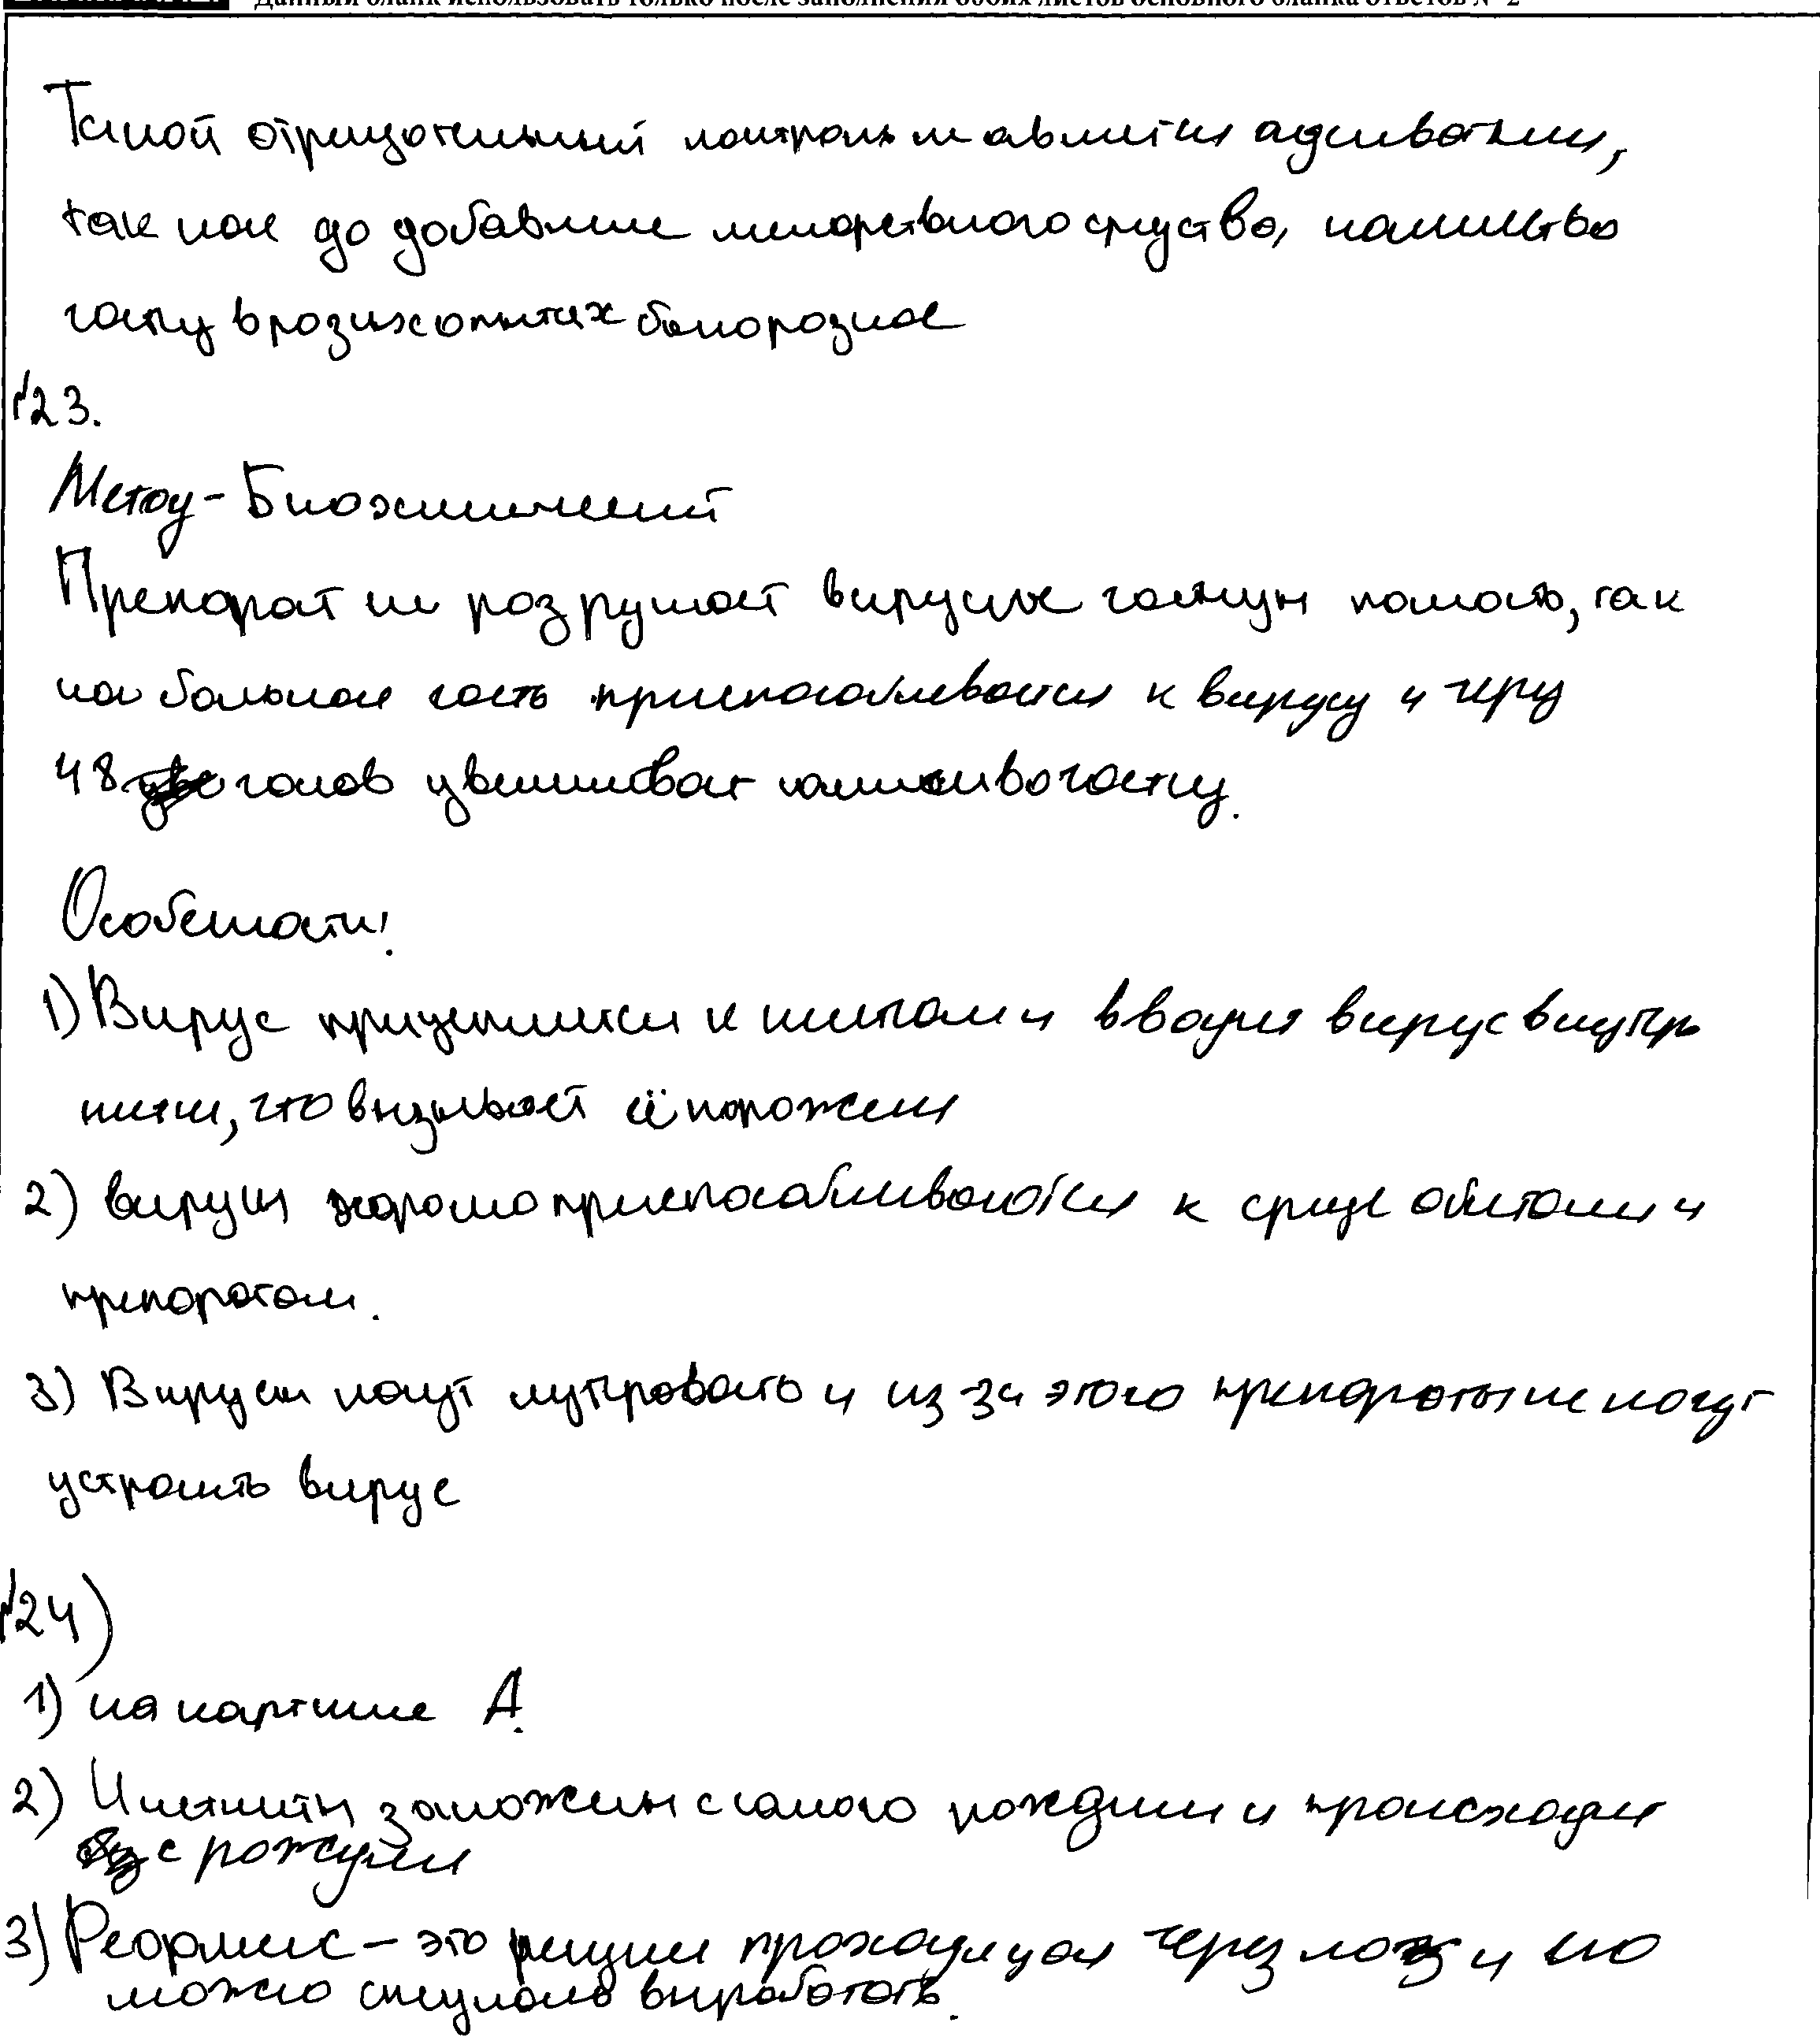 Данный бланк использовать только после заполнения обоих листов основного бланка ответов № 2
Такой отрицательный контроль не является адекватным,
так как до добавление лекарственного средства, количество
частиц в разных опытах было разное
№23.
Метод - Биохимический
Препарат не разрушает вирусные частицы полностью, так
как большая часть приспосабливается к вирусу и через
48 часов увеличивает количество частиц.
Особенности:
1) Вирус прицепляется к клеткам и вводит вирус внутрь
клетки, что вызывает её поражение
2) вирусы хорошо приспосабливаются к среде обитания и
препаратам.
3) Вирусы могут мутировать и из-за этого препараты не могут
устранить вирус
№24)
1) на картинке А.
2) Инстинкты заложены с самого рождения и происходят
с рождения
3) Рефлекс – это реакция проходящая через мозг и его
можно специально выработать.